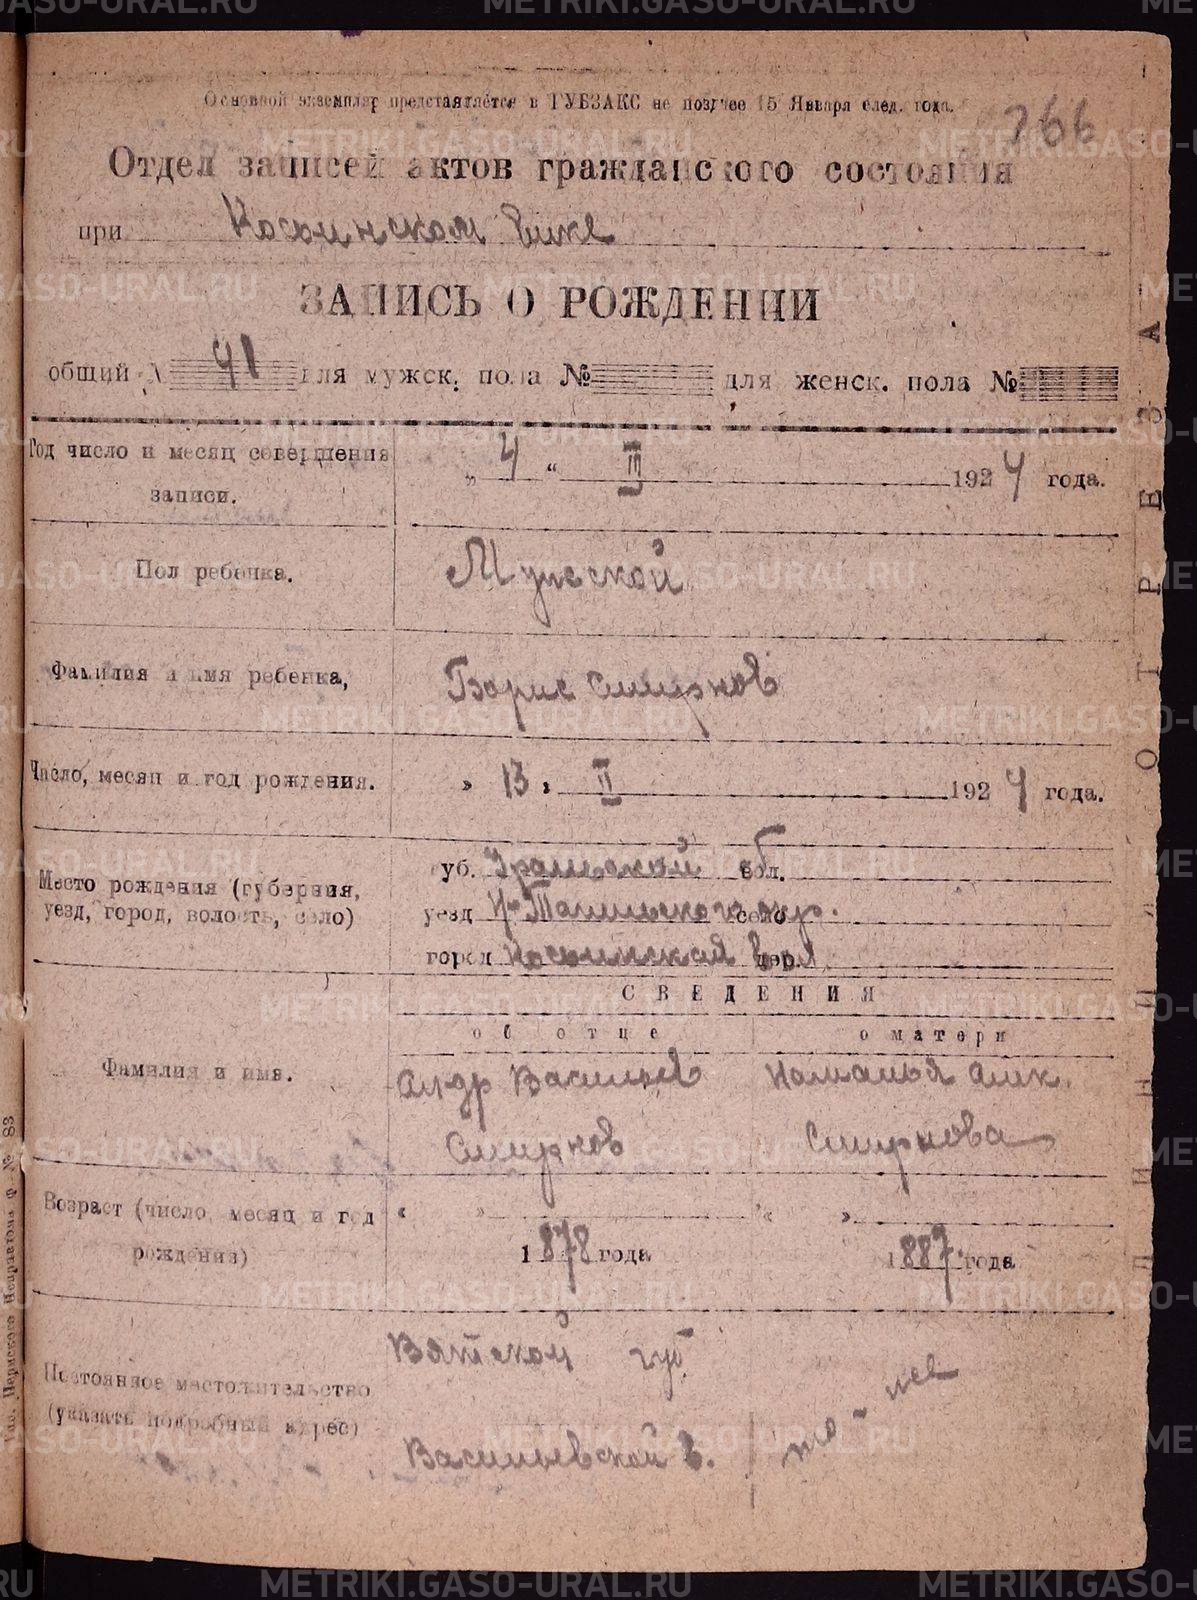 Основной экземпляр представляется в ГУБЗАКС не позднее 15 Января след. года.
266
Отдел записей актов гражданского состояния
при Косьинском Вике
ЗАПИСЬ О РОЖДЕНИИ
общий № 41 для мужск. пола № для женск. пола №
Год число и месяц совершения записи. „ 4 “ III 1924 года.
Пол ребенка. Мужской
Фамилия и имя ребенка, Борис Смирнов
Число, месяц и год рождения. » 13 » II 1924 года.
Место рождения (губерния, уб. Уральской обл.
уезд, город, волость, село) уезд Н-Тагильского окр. село
город Косьинский дер.
СВЕДЕНИЯ
об отце о матери
Фамилия и имя. Васильев Наталья
Смирнов Смирнова
Возраст (число, месяц и год « » « »
рождения) 1878 года 1887 года
Вятской губ
Постоянное местожительство
(указать подробный адрес)
Васильевской в.
той же
Тип. Пермского Исправдома Ф. № 83
ЛИНИЯ ОТРЕЗА
METRIKI.GASO-URAL.RU